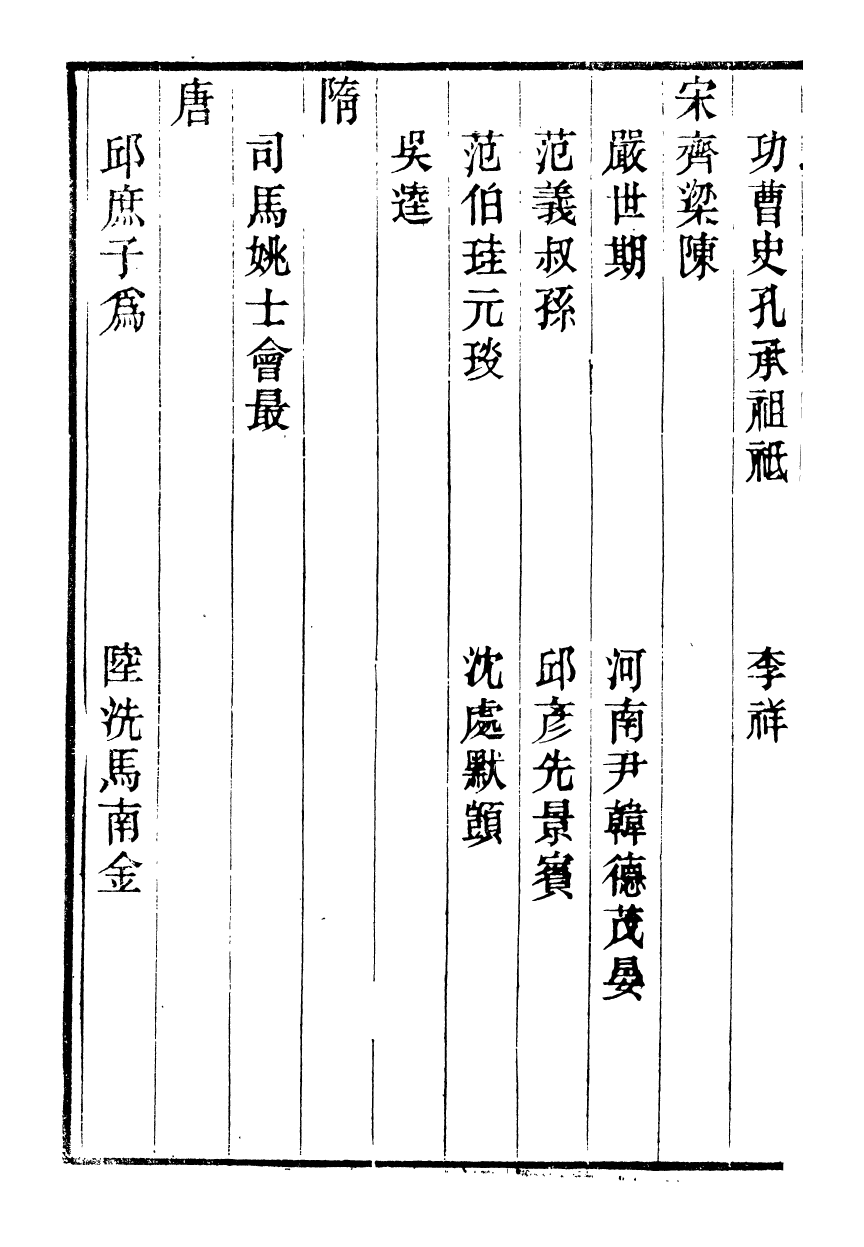 功曹史孔承祖祗　李祥
宋齊梁陳
嚴世期　河南尹韓德茂晏
范義叔孫　邱彥先景賓
范伯珪元琰　沈處默顗
吳逵
隋
司馬姚士會最
唐
邱庶子爲　陸洗馬南金